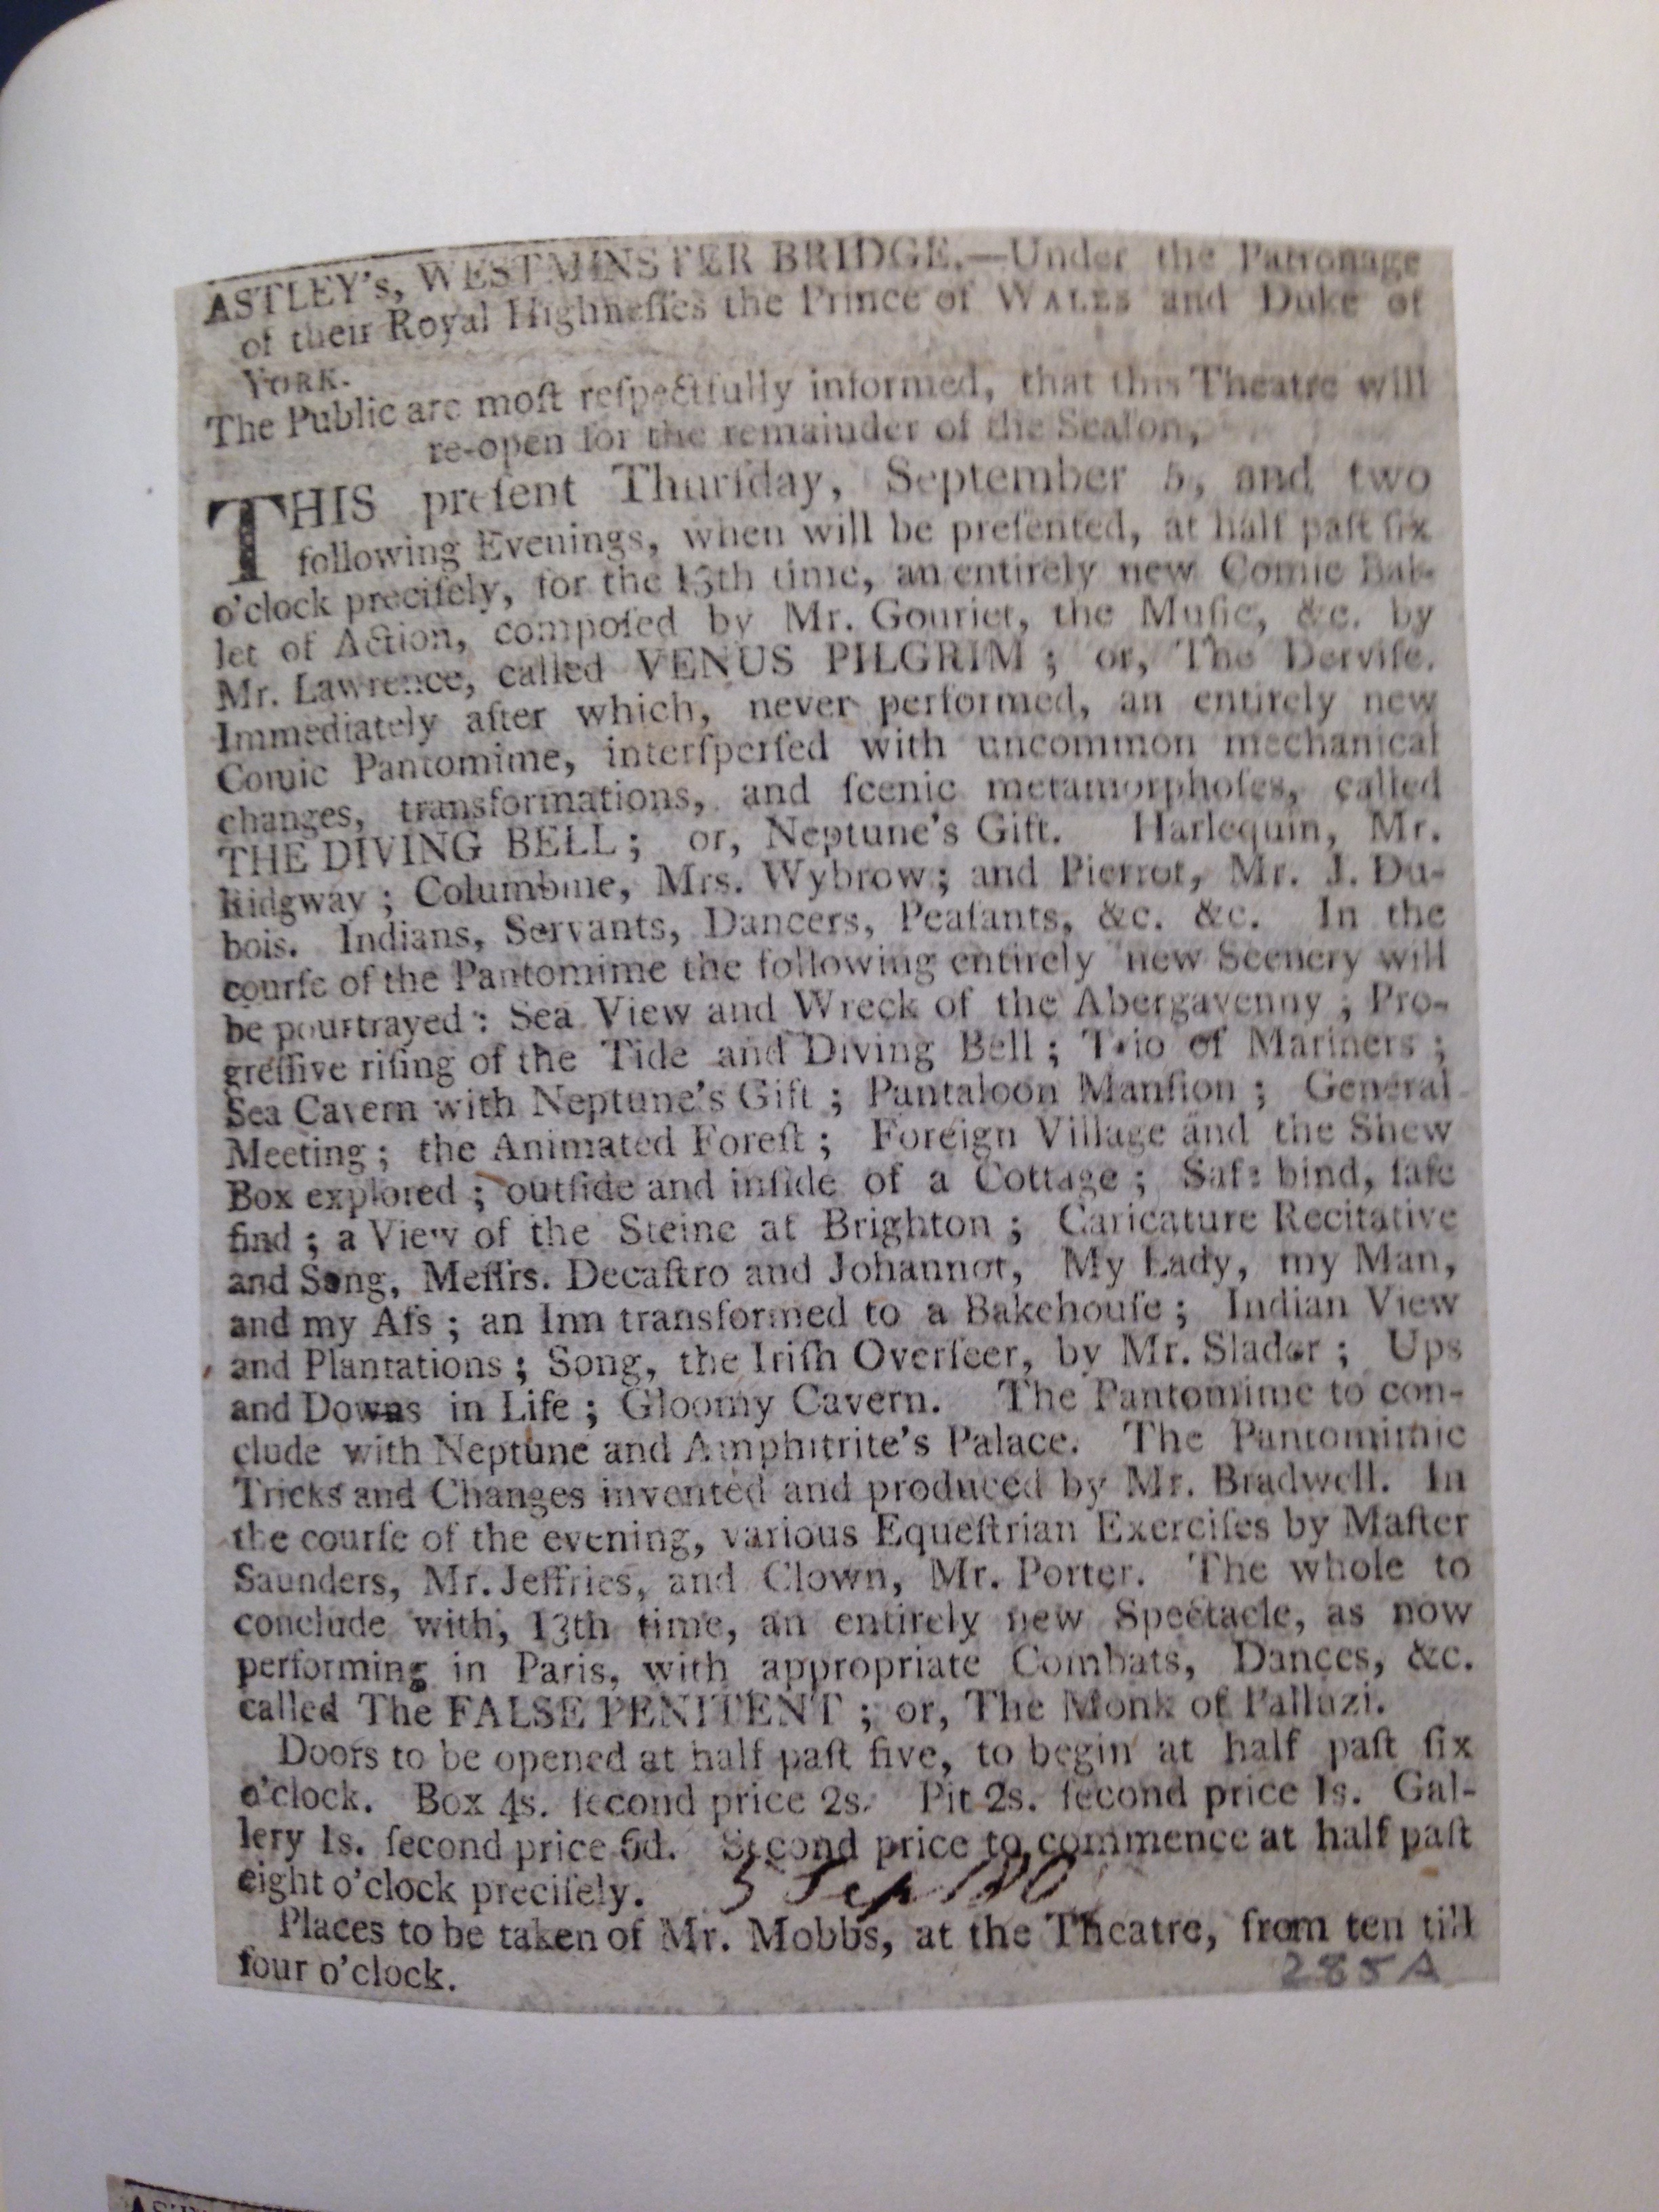 ASTLEY's, WESTMINSTER BRIDGE.—Under the Patronage
of their Royal Highneſſes the Prince of WALES and Duke of
YORK.
The Public are moſt reſpectfully informed, that this Theatre will
re-open for the remainder of the Seaſon,
THIS preſent Thurſday, September 5, and two
following Evenings, when will be preſented, at half paſt ſix
o'clock preciſely, for the 13th time, an entirely new Comic Bal-
let of Action, compoſed by Mr. Gouriet, the Muſic, &c. by
Mr. Lawrence, called VENUS PILGRIM; or, The Derviſe.
Immediately after which, never performed, an entirely new
Comic Pantomime, interſperſed with uncommon mechanical
changes, transformations, and ſcenic metamorphoſes, called
THE DIVING BELL; or, Neptune's Gift. Harlequin, Mr.
Ridgway; Columbine, Mrs. Wybrow; and Pierrot, Mr. J. Du-
bois. Indians, Servants, Dancers, Peaſants, &c. &c. In the
courſe of the Pantomime the following entirely new Scenery will
be pourtrayed: Sea View and Wreck of the Abergavenny; Pro-
greſſive riſing of the Tide and Diving Bell; Trio of Mariners;
Sea Cavern with Neptune's Gift; Pantaloon Manſion; General
Meeting; the Animated Foreſt; Foreign Village and the Shew
Box explored; outſide and inſide of a Cottage; Safe bind, ſafe
find; a View of the Steine at Brighton; Caricature Recitative
and Song, Meſſrs. Decaſtro and Johannot, My Lady, my Man,
and my Aſs; an Inn transformed to a Bakehouſe; Indian View
and Plantations; Song, the Iriſh Overſeer, by Mr. Slader; Ups
and Downs in Life; Gloomy Cavern. The Pantomime to con-
clude with Neptune and Amphitrite's Palace. The Pantomimic
Tricks and Changes invented and produced by Mr. Bradwell. In
the courſe of the evening, various Equeſtrian Exerciſes by Maſter
Saunders, Mr. Jeffries, and Clown, Mr. Porter. The whole to
conclude with, 13th time, an entirely new Spectacle, as now
performing in Paris, with appropriate Combats, Dances, &c.
called The FALSE PENITENT; or, The Monk of Palluzi.
Doors to be opened at half paſt five, to begin at half paſt ſix
o'clock. Box 4s. ſecond price 2s. Pit 2s. ſecond price 1s. Gal-
lery 1s. ſecond price 6d. Second price to commence at half paſt
eight o'clock preciſely. 5 Sep
Places to be taken of Mr. Mobbs, at the Theatre, from ten till
four o'clock. 285A